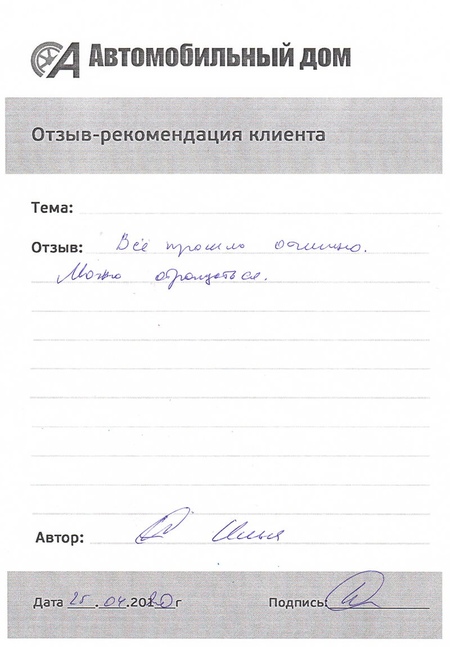 Автомобильный дом
Отзыв-рекомендация клиента
Тема:
Отзыв: Всё прошло отлично.
Можно обращаться.
Автор: Илья
Дата 25.04.2020г Подпись: